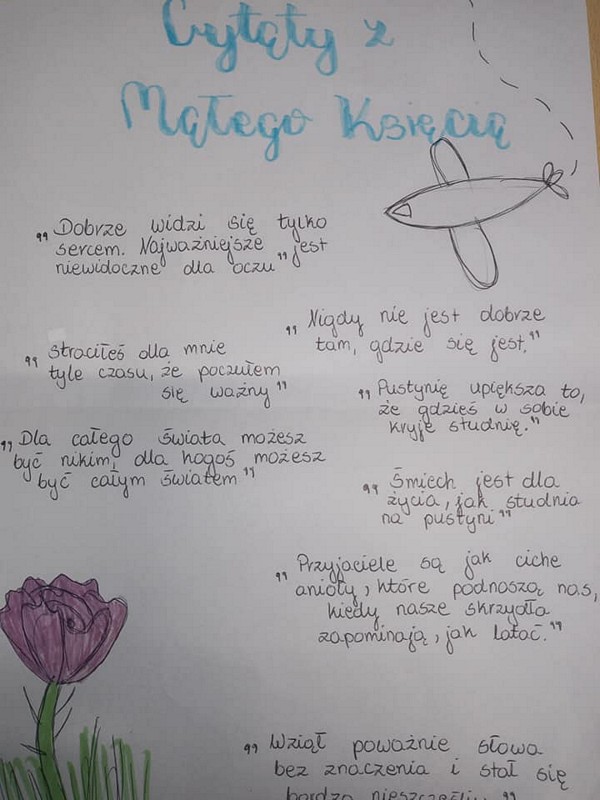 Cytąty z
Mątego Księcią
„Dobrze widzi się tylko
sercem. Najważniejsze jest
niewidoczne dla oczu"
„Nigdy nie jest dobrze
tam, gdzie się jest."
„Straciłeś dla mnie
tyle czasu, że poczułem
się ważny"
„Pustynię upiększa to,
że gdzieś w sobie
kryje studnię."
„Dla całego świata możesz
być nikim, dla kogoś możesz
być całym światem"
„Śmiech jest dla
życia, jak studnia
na pustyni"
„Przyjaciele są jak ciche
anioły, które podnoszą nas,
kiedy nasze skrzydła
zapominają, jak latać."
„Wziął poważnie słowa
bez znaczenia i stał się
bardzo nieszczęśliwy"